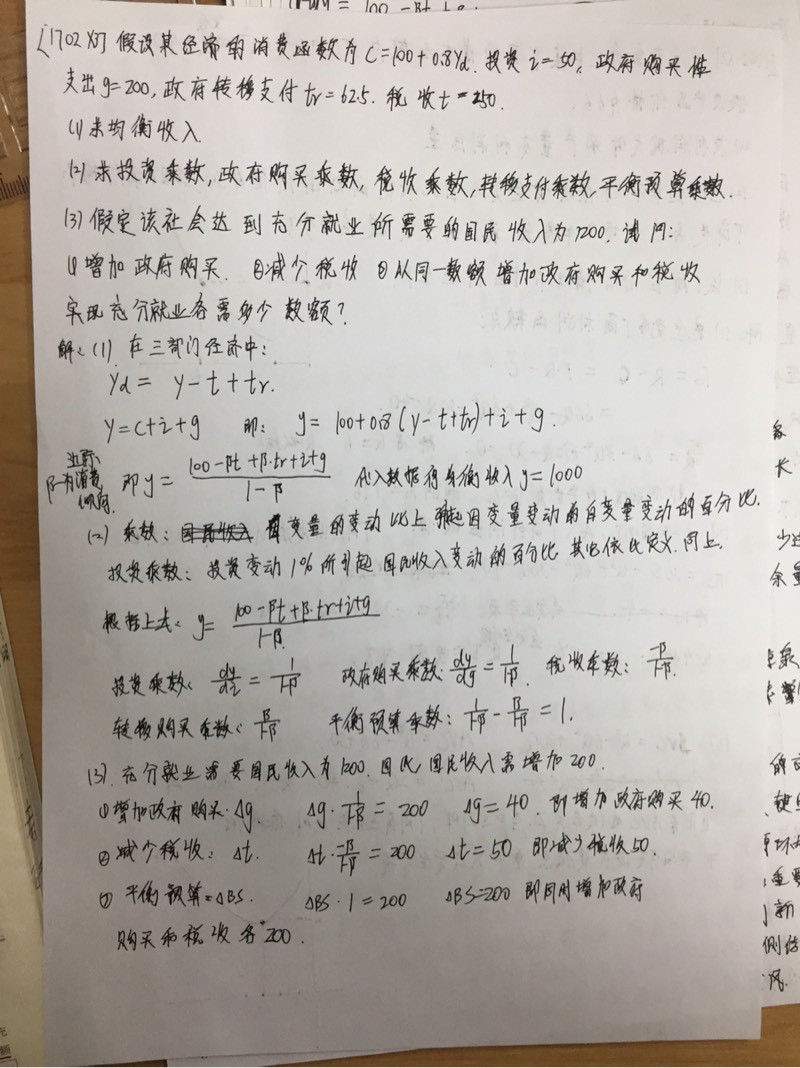 [1702 X7] 假设某经济的消费函数为 C=100+0.8Yd. 投资 i=50, 政府购买性
支出 g=200, 政府转移支付 tr=62.5. 税收 t=250.
(1) 求均衡收入.
(2) 求投资乘数, 政府购买乘数, 税收乘数, 转移支付乘数, 平衡预算乘数.
(3) 假定该社会达到充分就业所需要的国民收入为1200. 试问:
① 增加政府购买. ②减少税收 ③从同一数额增加政府购买和税收
实现充分就业各需多少数额?
解: (1) 在三部门经济中:
Yd = y-t+tr.
y=c+i+g 即: y=100+0.8(y-t+tr)+i+g.
边际
β为消费
倾向.
即 y= (100-βt+β.tr+i+g)/(1-β) 代入数据得均衡收入 y=1000
(2) 乘数: 变量的变动比上引起因变量变动的自变量变动的百分比.
投资乘数: 投资变动1%所引起国民收入变动的百分比. 其它依此定义. 同上.
根据上式: y= (100-βt+β.tr+i+g)/(1-β)
投资乘数: dy/di = 1/(1-β) 政府购买乘数: dy/dg = 1/(1-β) 税收乘数: -β/(1-β).
转移购买乘数: β/(1-β) 平衡预算乘数: 1/(1-β) - β/(1-β) = 1.
(3). 充分就业需要国民收入为1200. 因此, 国民收入需增加200.
①增加政府购买. Δg. Δg·1/(1-β) = 200 Δg=40. 即增加政府购买40.
② 减少税收: Δt. Δt·-β/(1-β) = 200 Δt=50 即减少税收50.
③ 平衡预算=ΔBS. ΔBS·1=200 ΔBS=200 即同时增加政府
购买和税收各200.